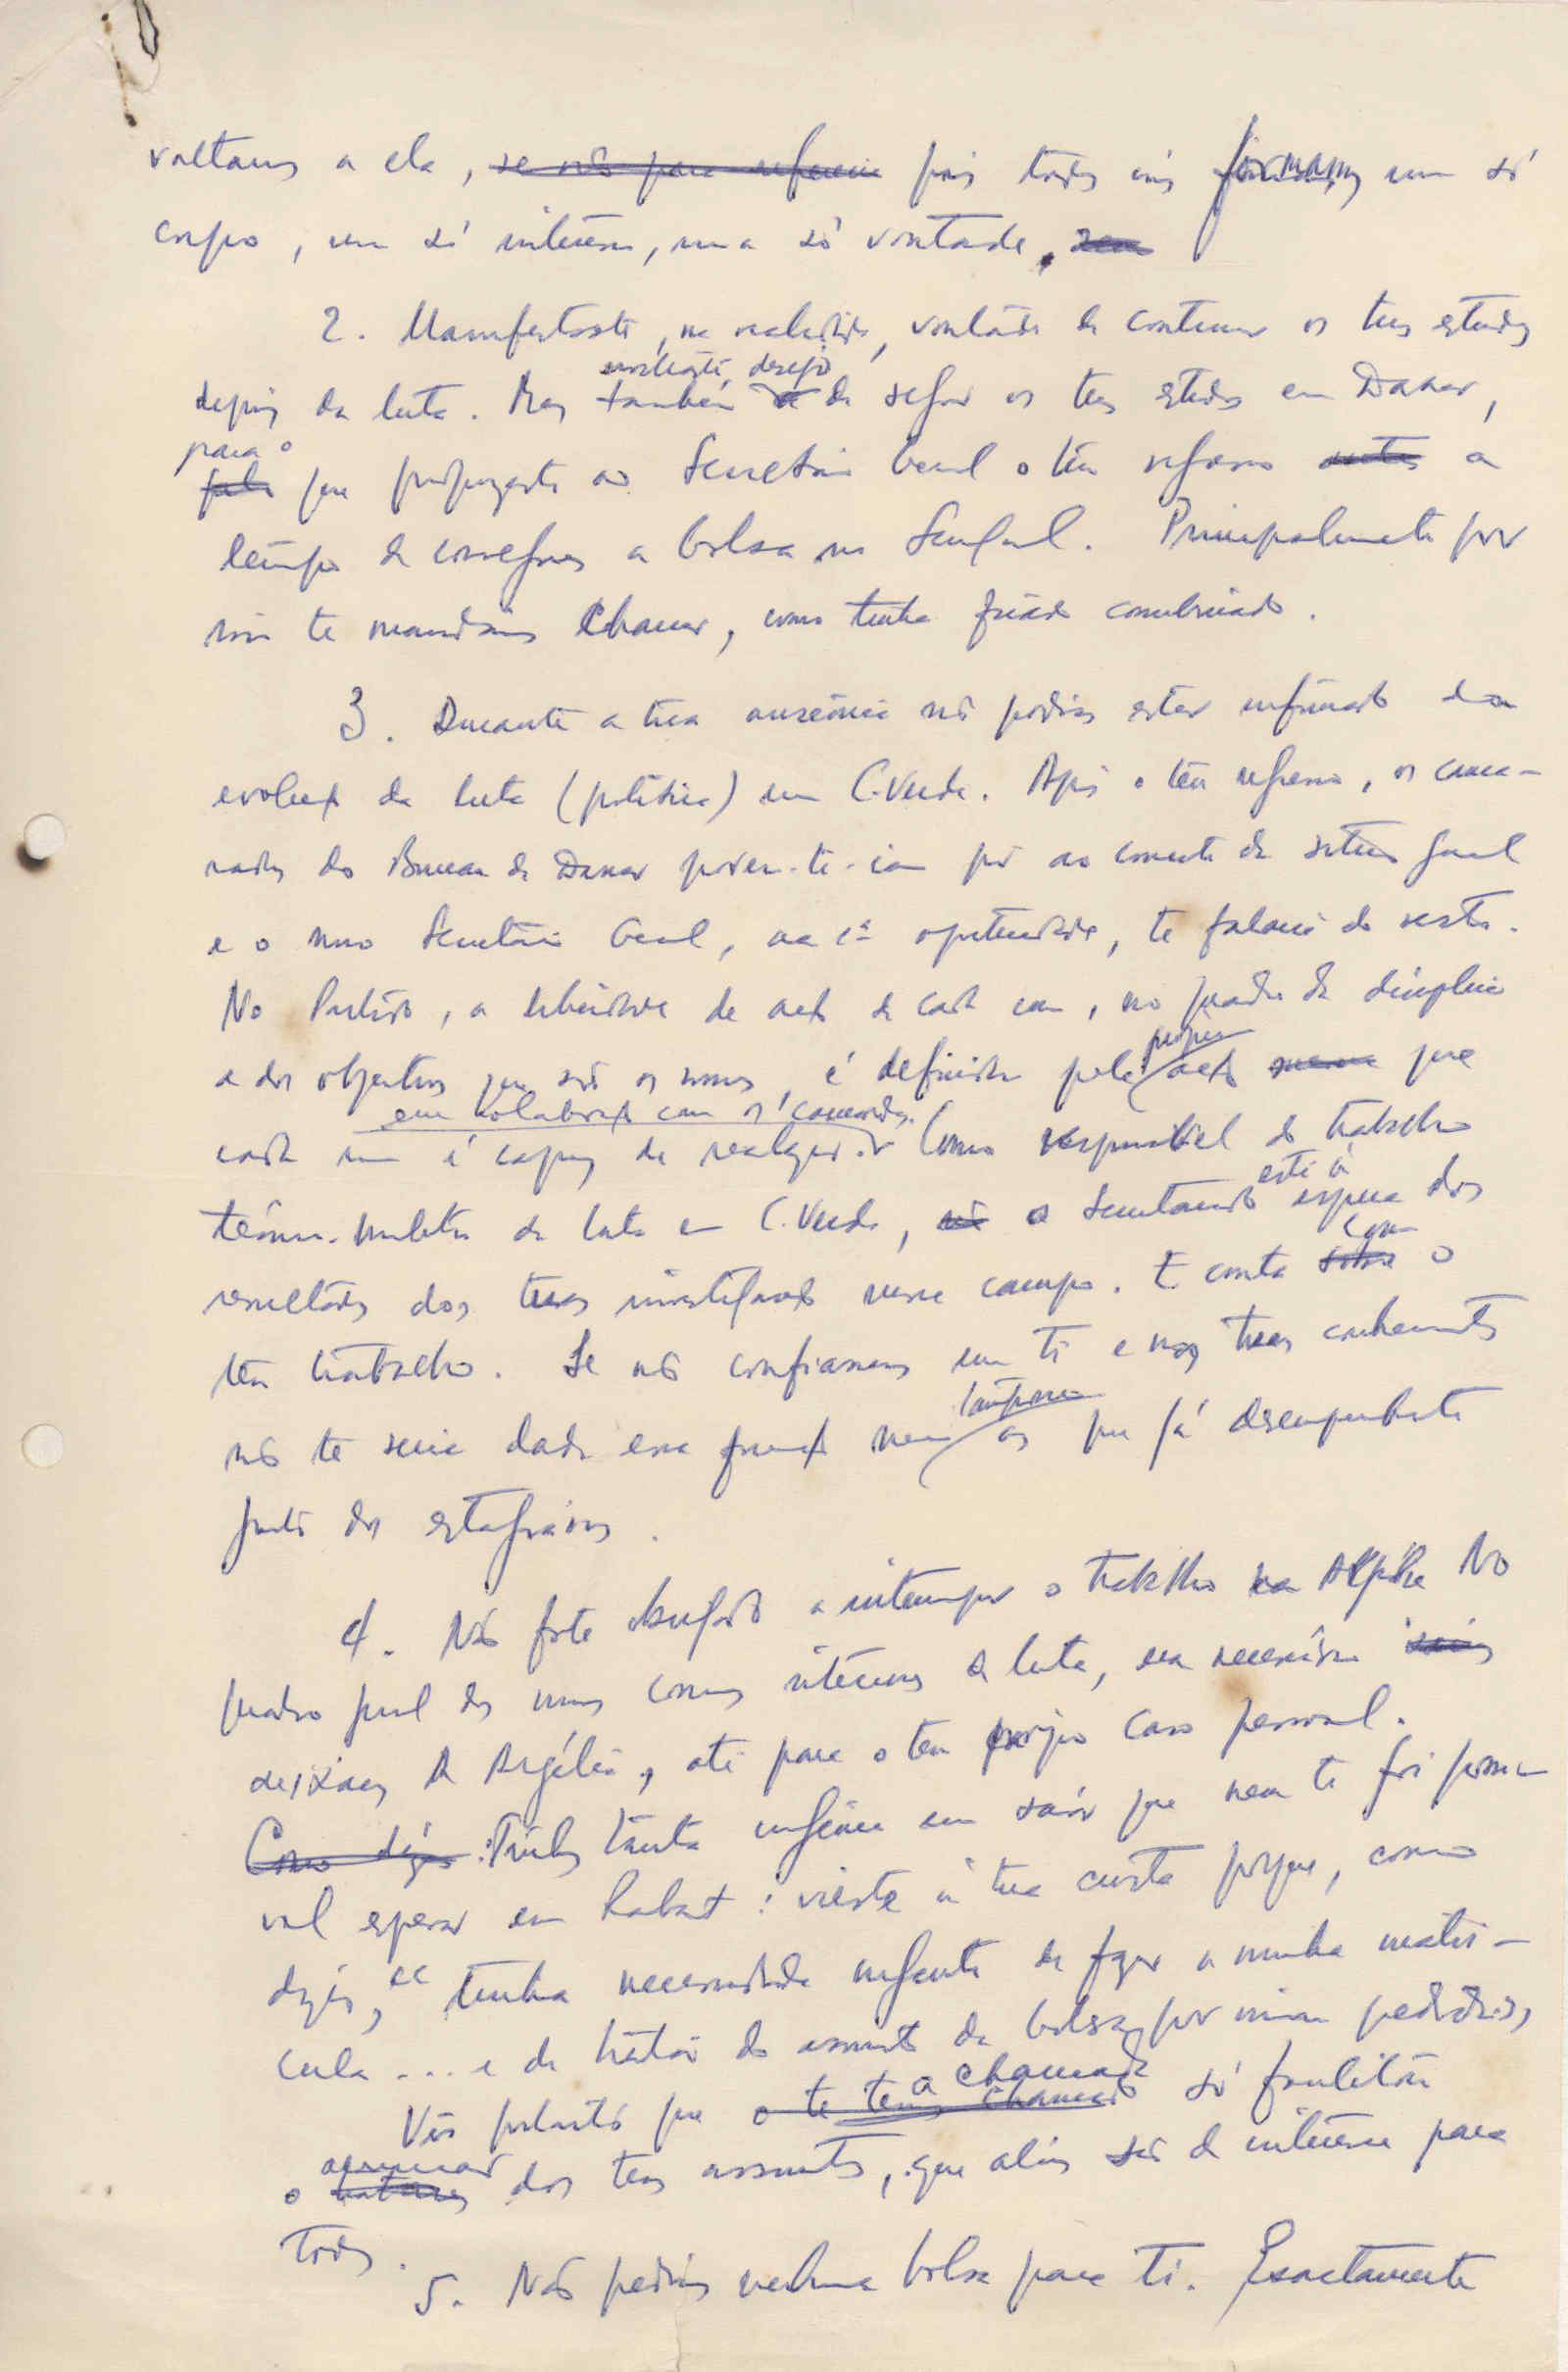 voltamos a ela, se não para pois todos nós formamos um só
corpo, um só interesse, uma só vontade.
2. Manifestaste, na realidade, vontade de continuar os teus estudos
depois da luta. Mas também manifestaste desejo de seguir os teus estudos em Dakar,
para o que propuzeste ao Secretário Geral o teu regresso a
tempo de conseguires a bolsa no Senegal. Principalmente por
isso te mandámos chamar, como tinha ficado combinado.
3. Durante a tua ausência não podias estar informado da
evolução da luta (política) em C. Verde. Após o teu regresso, os cama-
radas do Bureau de Dakar poem-te-iam ao corrente da situação geral
e o nosso Secretário Geral, na 1ª oportunidade, te falará do resto.
No Partido, a liberdade de acção de cada um, no quadro da disciplina
e dos objectivos que são os nossos, é definida pela própria acção que
cada um é capaz de realizar em colaboração com os camaradas. Como responsável do trabalho
técnico-militar da luta em C. Verde, o Secretariado está à espera dos
resultados das tuas investigações nesse campo. E conta com o
teu trabalho. Se não confiassemos em ti e nos teus conhecimentos
não te seria dada essa função nem tampouco as que já desempenhaste
junto dos estagiários.
4. Não foste obrigado a interromper o trabalho na Argélia. No
quadro geral dos nossos comuns interesses da luta, era necessário
deixares a Argélia, até para o teu próprio caso pessoal.
Como dizes: Tinhas tanta urgência em sair que nem te foi possí-
vel esperar em Rabat: vieste à tua custa porque, como
dizes, "tinha necessidade urgente de fazer a minha matrí-
cula.... e de tratar do assunto da bolsa por mim pedida",
Vês portanto que o te termos chamado a chamada só facilitou
o arrumar dos teus assuntos, que aliás são de interesse para
todos.
5. Não pedimos nenhuma bolsa para ti. Exactamente